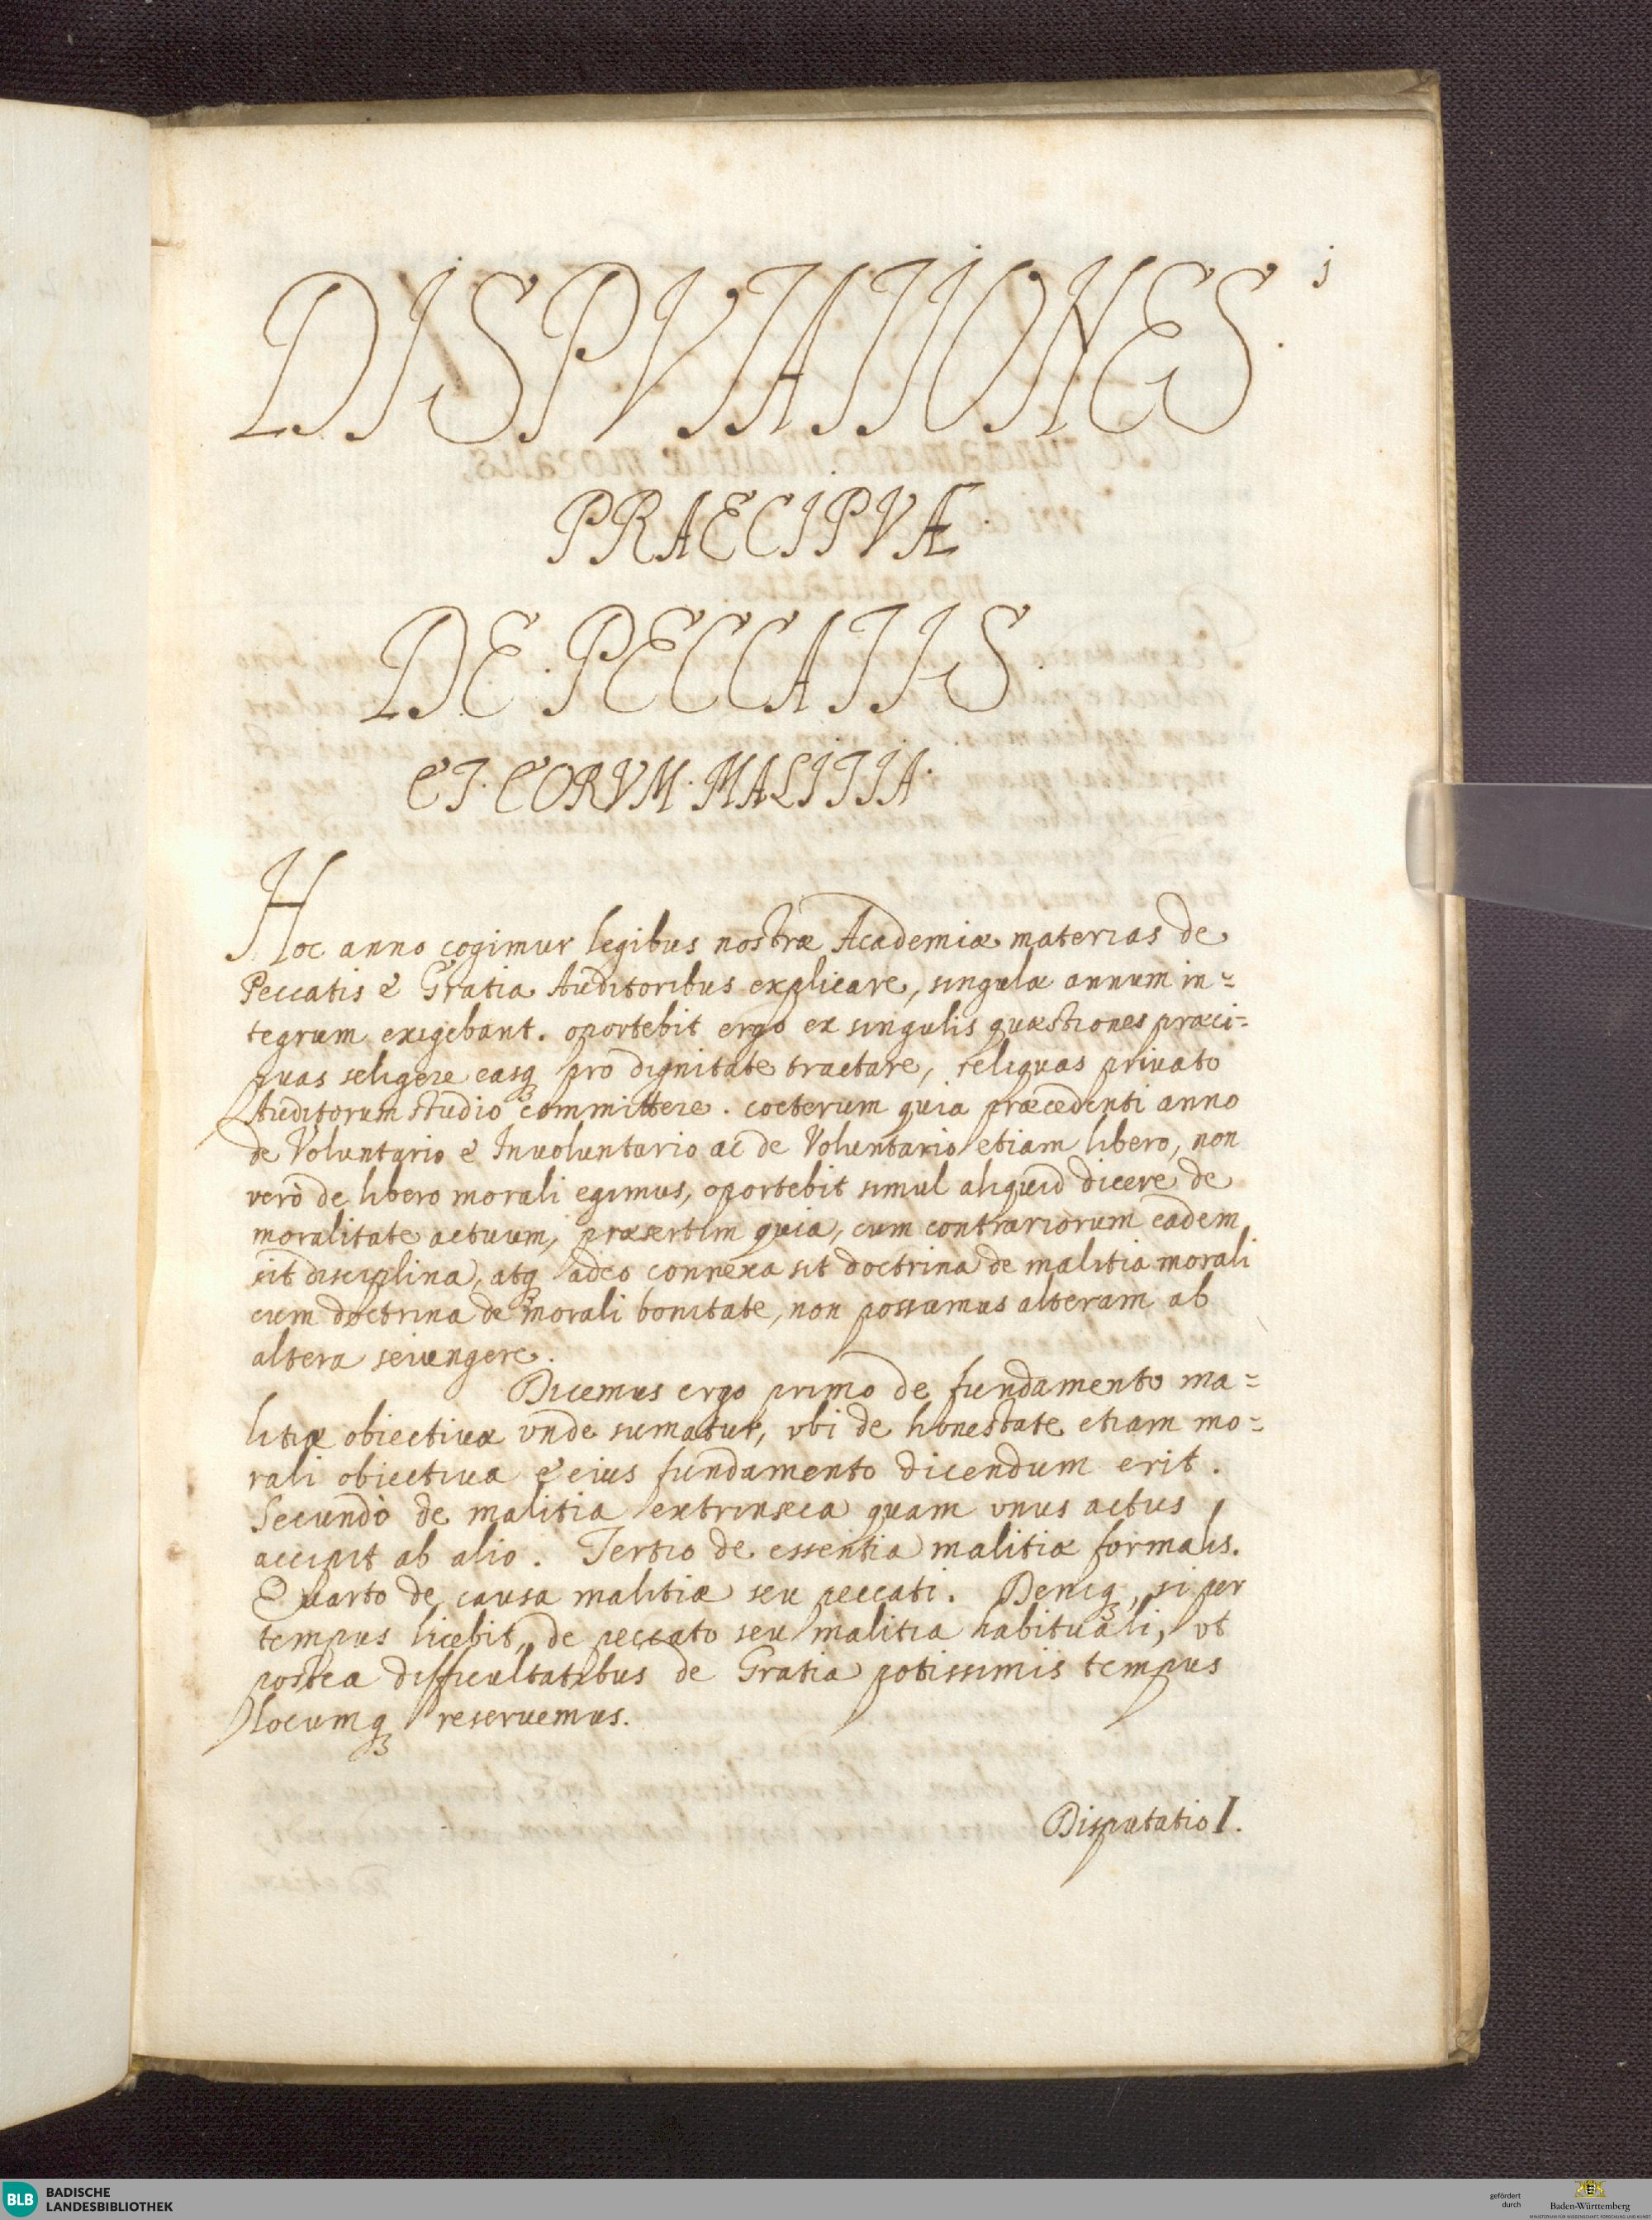 1
DISPVTATIONES.
PRAECIPVÆ.
DE. PECCATIS.
ET. EORVM. MALITIA.
Hoc anno cogimur legibus nostræ Academiæ materias de
Peccatis & Gratia Auditoribus explicare, singulæ annum in=
tegrum exigebant. oportebit ergo ex singulis quæstiones præci=
puas seligere easqꝫ pro dignitate tractare, reliquas priuato
Auditorum studio committere. coeterum quia præcedenti anno
de Voluntario & Inuoluntario ac de Voluntario etiam libero, non
verò de libero morali egimus, oportebit simul aliquid dicere de
moralitate actuum, præsertim quia, cum contrariorum eadem
sit disciplina, atqꝫ adeo connexa sit doctrina de malitia morali
cum doctrina de morali bonitate, non possumus alteram ab
altera seiungere.
Dicemus ergo primo de fundamento ma=
litiæ obiectiuæ vnde sumatur, vbi de honestate etiam mo=
rali obiectiua & eius fundamento dicendum erit.
Secundò de malitia extrinseca quam vnus actus
accipit ab alio. Tertio de essentia malitiæ formalis.
Quarto de causa malitiæ seu peccati. Deniqꝫ, si per
tempus licebit, de peccato seu malitia habituali, vt
postea difficultatibus de Gratia potissimis tempus
locumqꝫ reseruemus.
Disputatio I.
BLB BADISCHE
LANDESBIBLIOTHEK
gefördert
durch
Baden-Württemberg
MINISTERIUM FÜR WISSENSCHAFT, FORSCHUNG UND KUNST